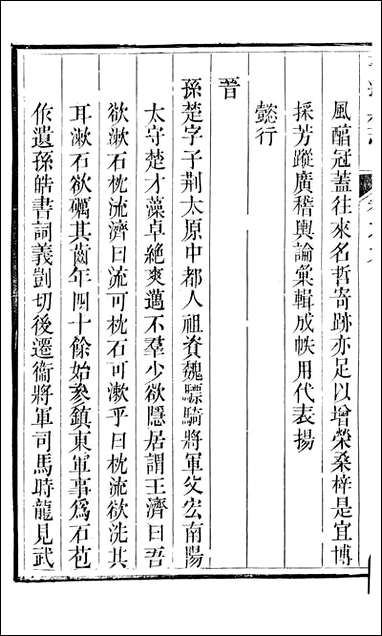 風醕冠蓋往來名哲寄跡亦足以增榮桑梓是宜博
採芳蹤廣稽輿論彙輯成帙用代表揚
懿行
晉
孫楚字子荆太原中都人祖資魏驃騎將軍父宏南陽
太守楚才藻卓絶爽邁不羣少欲隱居謂王濟曰吾
欲漱石枕流濟曰流可枕石可漱乎曰枕流欲洗其
耳漱石欲礪其齒年四十餘始參鎮東軍事爲石苞
作遺孫皓書詞義剴切後遷衞將軍司馬時龍見武